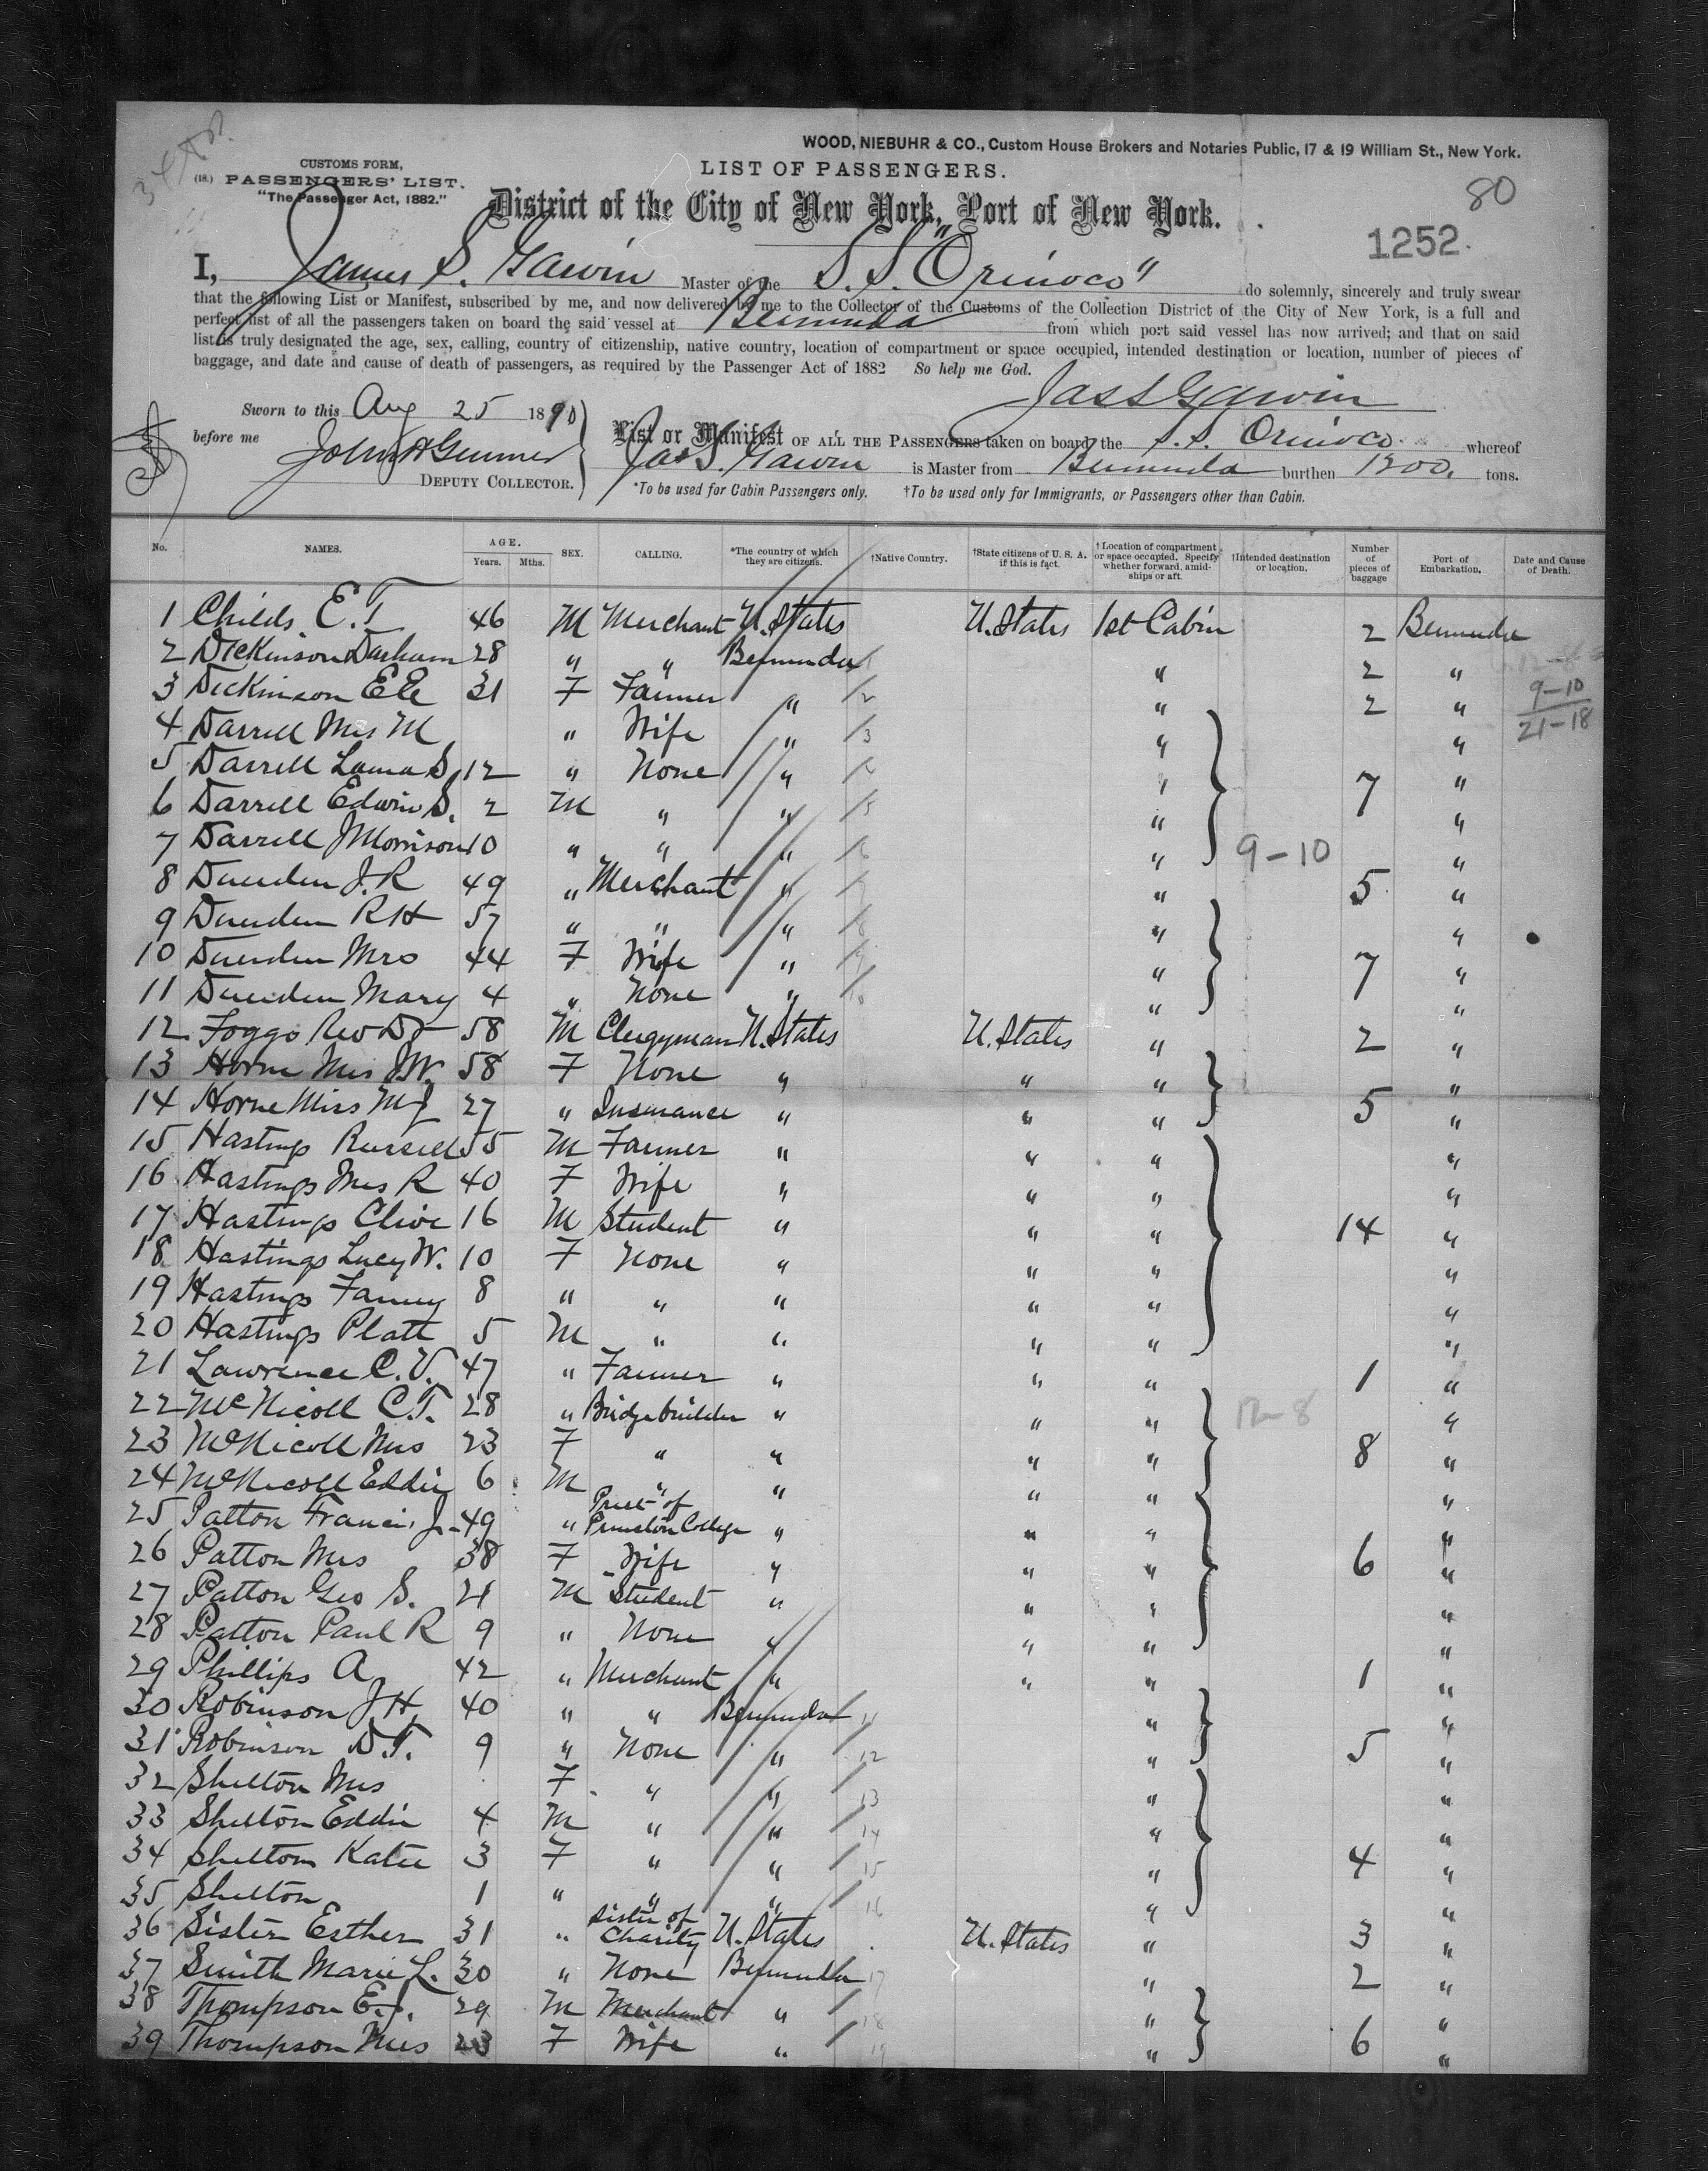 34
WOOD, NIEBUHR & CO., Custom House Brokers and Notaries Public, 17 & 19 William St., New York.
CUSTOMS FORM,
(18.) PASSENGERS' LIST.
"The Passenger Act, 1882."
LIST OF PASSENGERS.
80
District of the City of New York, Port of New York.
1252
I, James S. Garvin Master of the S.S. "Orinoco" do solemnly, sincerely and truly swear
that the following List or Manifest, subscribed by me, and now delivered by me to the Collector of the Customs of the Collection District of the City of New York, is a full and
perfect list of all the passengers taken on board the said vessel at Bermuda from which port said vessel has now arrived; and that on said
list is truly designated the age, sex, calling, country of citizenship, native country, location of compartment or space occupied, intended destination or location, number of pieces of
baggage, and date and cause of death of passengers, as required by the Passenger Act of 1882 So help me God.
Jas S Garvin
Sworn to this Aug 25 1890
before me
DEPUTY COLLECTOR.
List or Manifest OF ALL THE PASSENGERS taken on board the S.S. Orinoco whereof
Jas S. Garvin is Master from Bermuda burthen 1200. tons.
*To be used for Cabin Passengers only. †To be used only for Immigrants, or Passengers other than Cabin.
No. NAMES. AGE. Years. Mths. SEX. CALLING. *The country of which they are citizens. †Native Country. †State citizens of U. S. A. if this is fact. †Location of compartment or space occupied. Specify whether forward, amidships or aft. †Intended destination or location. Number of pieces of baggage Port of Embarkation. Date and Cause of Death.
1 Childs E.T 46 M Merchant U. States U. States 1st Cabin 2 Bermuda
2 Dickinson 28 " " Bermuda 1 " 2 "
3 Dickinson 31 F Farmer " 2 " 2 " 9-10
4 Darrell Mrs M " Wife " 3 " " 21-18
5 Darrell S 12 " None " 4 " "
6 Darrell Edwin S. 2 M " " 5 " 7 "
7 Darrell J Morrison 10 " " " 6 " 9-10 "
8 J. R 49 " Merchant " 7 " 5 "
9 R H 57 " " " 8 " "
10 Mrs 44 F Wife " 9 " 7 "
11 Mary 4 " None " 10 " "
12 Foggo Rev 58 M Clergyman U. States U. States " 2 "
13 Horne Mrs J.W. 58 F None " " " "
14 Horne Miss M J 27 " Insurance " " " 5 "
15 Hastings Russell 55 M Farmer " " " "
16 Hastings Mrs R 40 F Wife " " " "
17 Hastings Clive 16 M Student " " " 14 "
18 Hastings Lucy W. 10 F None " " " "
19 Hastings Fanny 8 " " " " " "
20 Hastings Platt 5 M " " " " "
21 Lawrence C. V. 47 " Farmer " " " 1 "
22 McNicoll C.T. 28 " Bridge builder " " " "
23 McNicoll Mrs 23 F " " " " 8 "
24 McNicoll Eddie 6 M " " " " "
25 Patton Francis J- 49 " Prest of Princeton College " " " "
26 Patton Mrs 38 F Wife " " " 6 "
27 Patton Geo S. 21 M Student " " " "
28 Patton Paul R 9 " None " " " "
29 Phillips A 42 " Merchant " " " 1 "
30 Robinson J.H. 40 " " Bermuda 11 " "
31 Robinson D.T. 9 " None " 12 " 5 "
32 Shelton Mrs F " " 13 " "
33 Shelton Eddie 4 M " " 14 " "
34 Shelton Katie 3 F " " 15 " 4 "
35 Shelton 1 " " " 16 " "
36 Sister Esther 31 " Sister of Charity U. States U. States " 3 "
37 Smith Marie L. 30 " None Bermuda 17 " 2 "
38 Thompson E.J. 29 M Merchant " 18 " "
39 Thompson Mrs 23 F Wife " 19 " 6 "